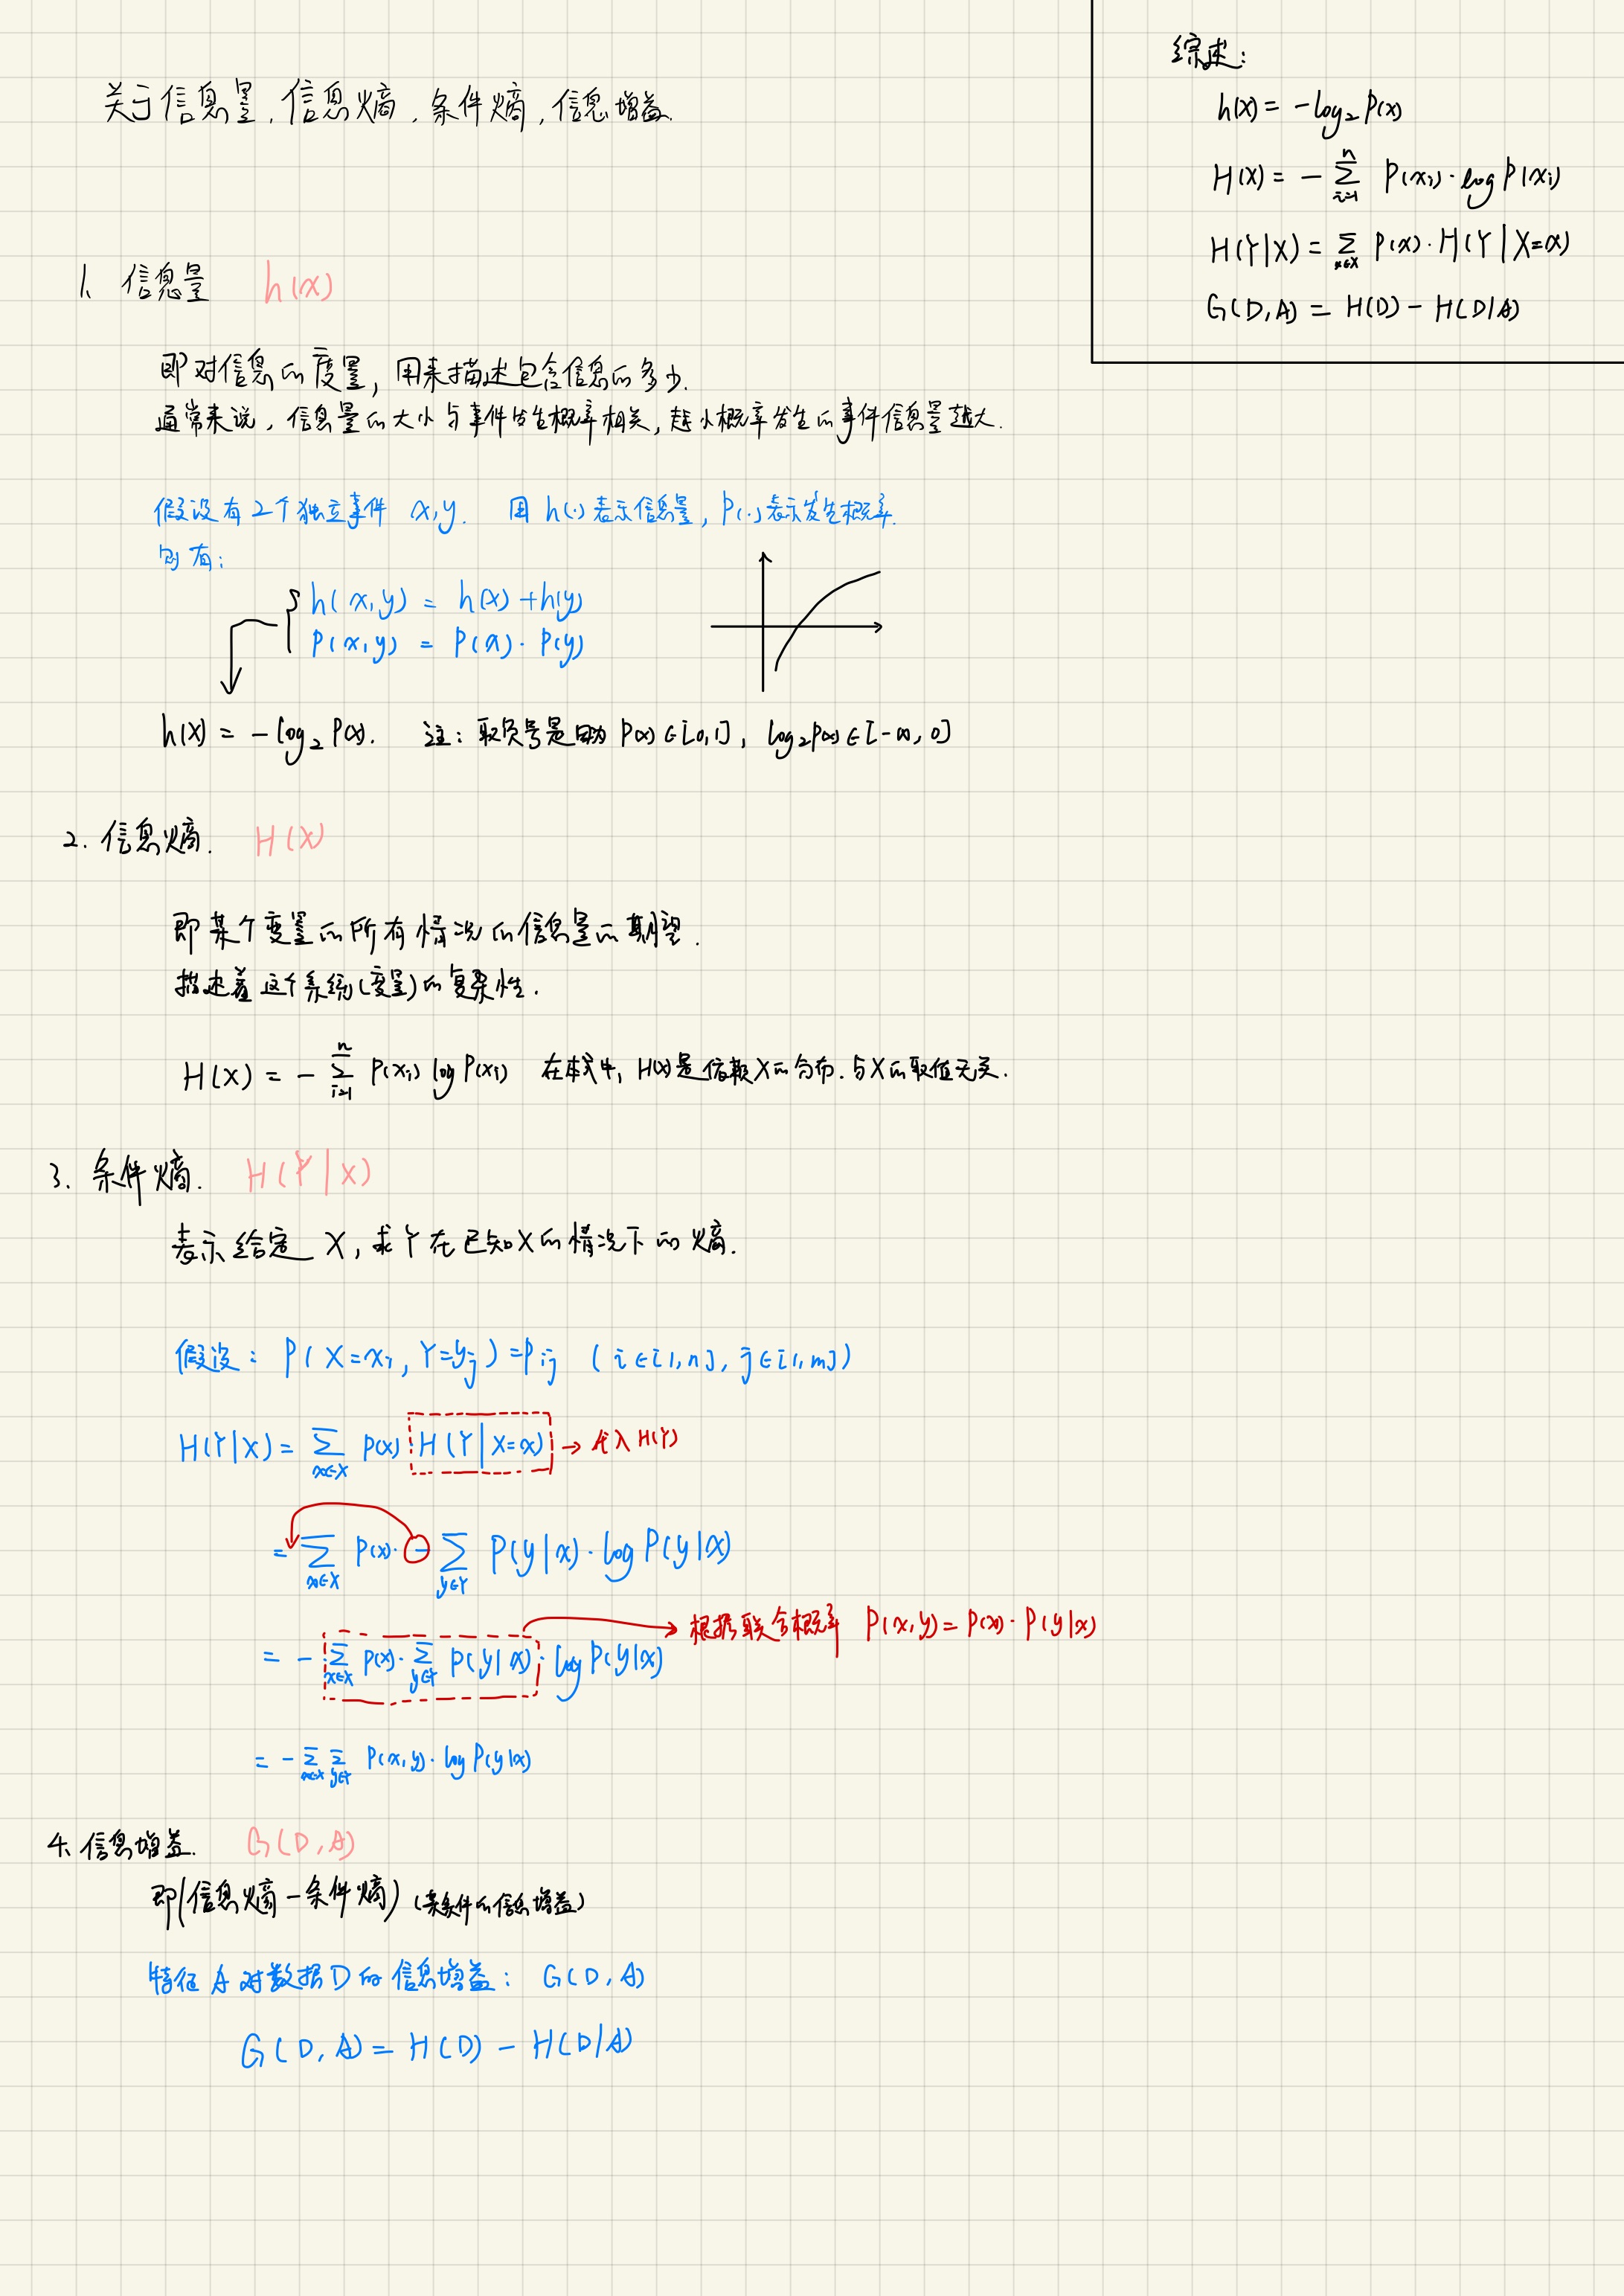 关于信息量,信息熵,条件熵,信息增益.
综述:
h(x) = -log₂P(x)
H(X) = - ∑ᵢ₌₁ⁿ P(xᵢ)·log P(xᵢ)
H(Y|X) = ∑ₓ∈X P(x)·H(Y|X=x)
G(D,A) = H(D) - H(D|A)
1、信息量 h(x)
即对信息的度量,用来描述包含信息的多少.
通常来说,信息量的大小与事件发生概率相关,越小概率发生的事件信息量越大.
假设有2个独立事件 x,y. 用 h(·)表示信息量, P(·)表示发生概率.
则有:
h(x,y) = h(x)+h(y)
P(x,y) = P(x)·P(y)
h(x) = -log₂P(x). 注:取负号是因为 P(x)∈[0,1], log₂P(x)∈[-∞,0]
2.信息熵. H(X)
即某个变量的所有情况的信息量的期望.
描述着这个系统(变量)的复杂性.
H(X) = - ∑ᵢ₌₁ⁿ P(xᵢ) log P(xᵢ) 在本式中, H(X)是依赖X的分布.与X的取值无关.
3. 条件熵. H(Y|X)
表示给定 X,求Y在已知X的情况下的熵.
假设: P(X=xᵢ,Y=yⱼ)=Pᵢⱼ (i∈[1,n], j∈[1,m])
H(Y|X) = ∑ₓ∈X P(x)·H(Y|X=x) → 代入H(Y)
= ∑ₓ∈X P(x)· - ∑y∈Y P(y|x)·log P(y|x)
= - ∑ₓ∈X P(x)·∑y∈Y P(y|x)·log P(y|x) 根据联合概率 P(x,y)=P(x)·P(y|x)
= - ∑ₓ∈X ∑y∈Y P(x,y)·log P(y|x)
4、信息增益. G(D,A)
即(信息熵-条件熵)(某条件的信息增益)
特征A对数据D的信息增益: G(D,A)
G(D,A) = H(D) - H(D|A)